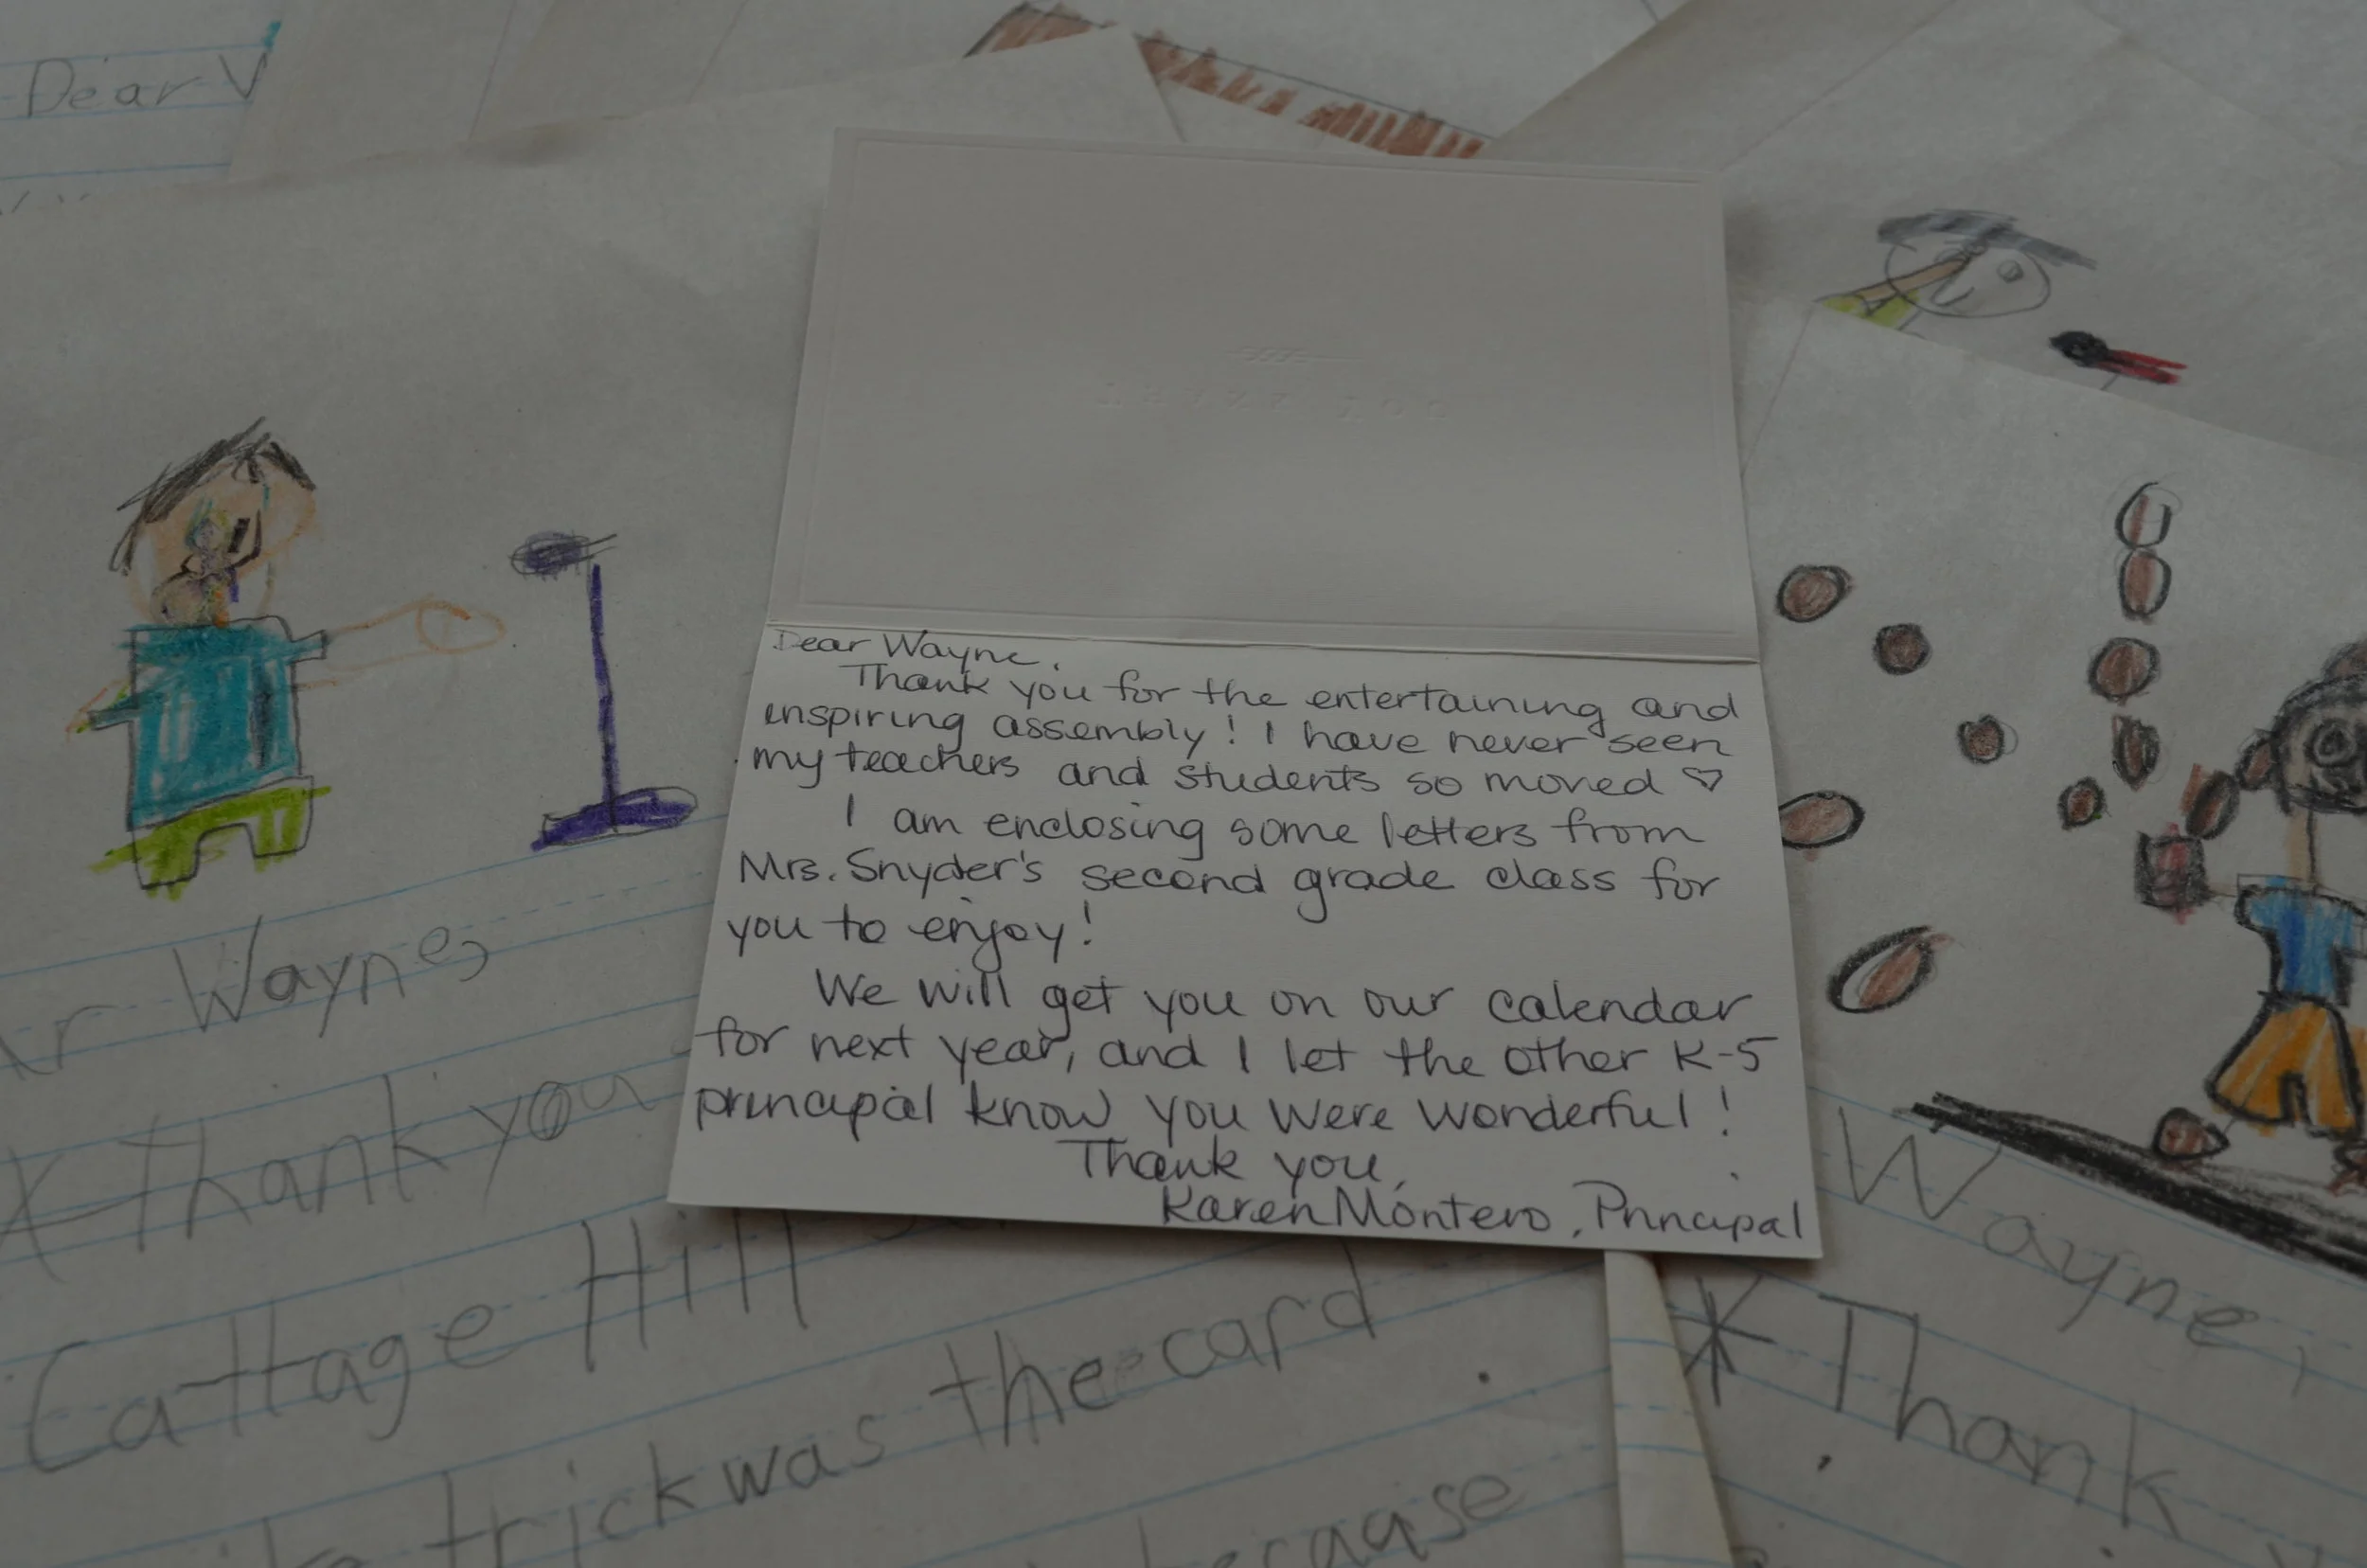 Dear
Dear Wayne,
Thank you for the entertaining and
inspiring assembly! I have never seen
my teachers and students so moved ♡
I am enclosing some letters from
Mrs. Snyder's second grade class for
you to enjoy!
We will get you on our calendar
for next year, and I let the other K-5
principal know you were wonderful!
Thank you,
Karen Montero, Principal
Wayne,
Thank you
Cattage Hill
trick was the card
Wayne,
* Thank